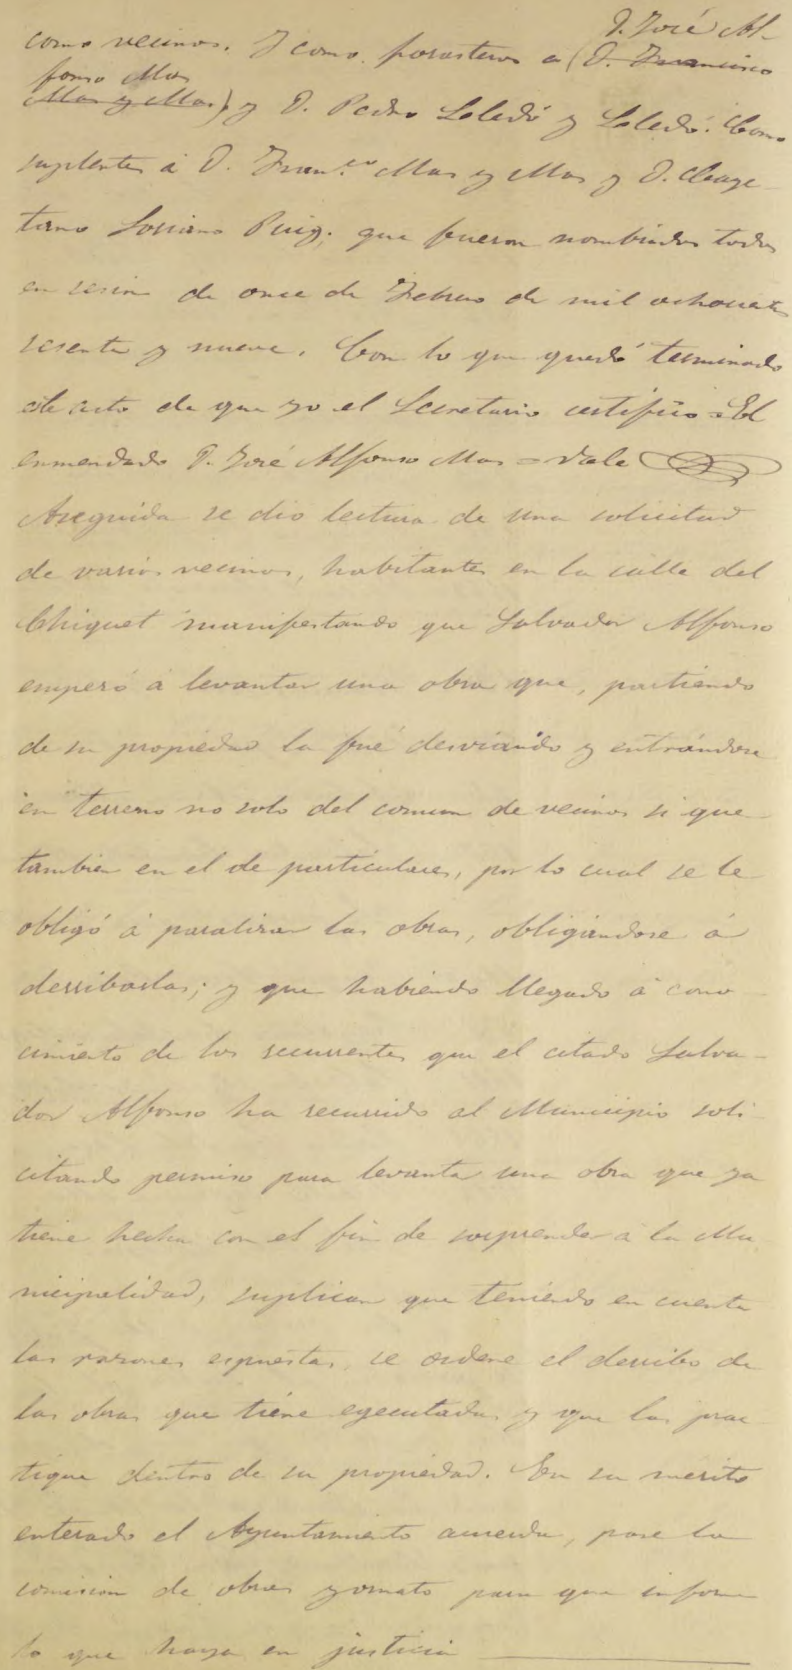 D. José Al-
como vecinos. Y como forasteros a (D. Francisco
fonso Mas
Mas y Mas) y D. Pedro Lledó y Lledó. Como
suplentes á D. Fran.co Mas y Mas y D. Caye-
tano Soriano Puig, que fueron nombrados todos
en sesion de once de Febrero de mil ochocientos
sesenta y nueve. Con lo que quedó terminado
este acto de que yo el Secretario certifico = El
enmendado D. José Alfonso Mas = Vale
Aseguida se dio lectura de una solicitud
de varios vecinos, habitantes en la calle del
Chiquet manifestando que Salvador Alfonso
empezó á levantar una obra que, partiendo
de su propiedad la fué desviando y entrándose
en terreno no solo del comun de vecinos si que
tambien en el de particulares, por lo cual se le
obligó á paralizar las obras, obligándose á
derribarlas; y que habiendo llegado á cono-
cimiento de los recurrentes que el citado Salva-
dor Alfonso ha recurrido al Municipio soli-
citando permiso para levantar una obra que ya
tiene hecha con el fin de sorprender á la Mu-
nicipalidad, suplican que teniendo en cuenta
las razones espuestas, se ordene el derribo de
las obras que tiene egecutadas y que las prac-
tique dentro de su propiedad. En su merito
enterado el Ayuntamiento acuerda, pase la
comision de obras y ornato para que informe
lo que haya en justicia